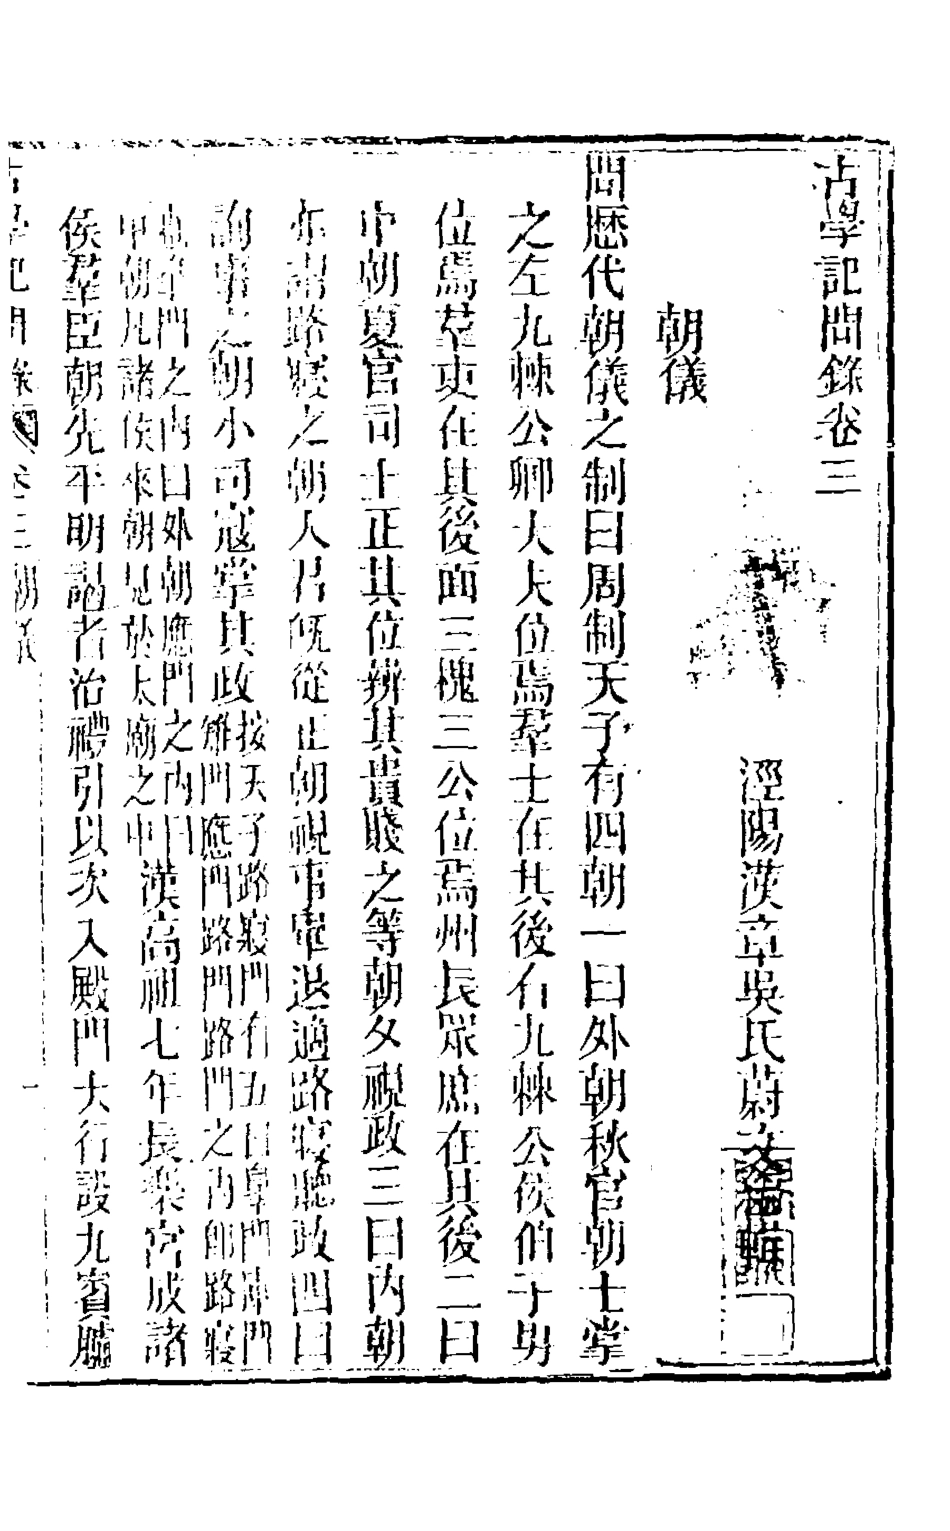 古學記問錄卷三
涇陽漢章吳氏蔚文
朝儀
問歷代朝儀之制曰周制天子有四朝一曰外朝秋官朝士掌
之左九棘公卿大夫位焉羣士在其後右九棘公侯伯子男
位焉羣吏在其後面三槐三公位焉州長眾庶在其後二曰
中朝夏官司士正其位辨其貴賤之等朝夕視政三曰內朝
亦謂路寢之朝人君旣從正朝視事畢退適路寢聽政四曰
詢事之朝小司寇掌其政按天子路寢門有五曰皋門庫門
雉門應門路門路門之內卽路寢
門之內曰外朝應門之內曰
中朝凡諸侯來朝見於太廟之中漢高祖七年長樂宮成諸
侯羣臣朝先平明謁者治禮引以次入殿門大行設九賓臚
古學記問錄 卷三朝儀
一